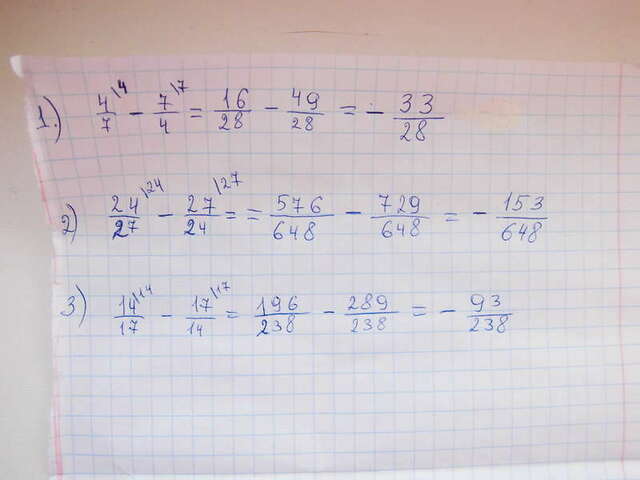 1.) 4/7 \4 − 7/4 \7 = 16/28 − 49/28 = − 33/28
2) 24/27 \24 − 27/24 \27 = = 576/648 − 729/648 = − 153/648
3) 14/17 \14 − 17/14 \17 = 196/238 − 289/238 = − 93/238